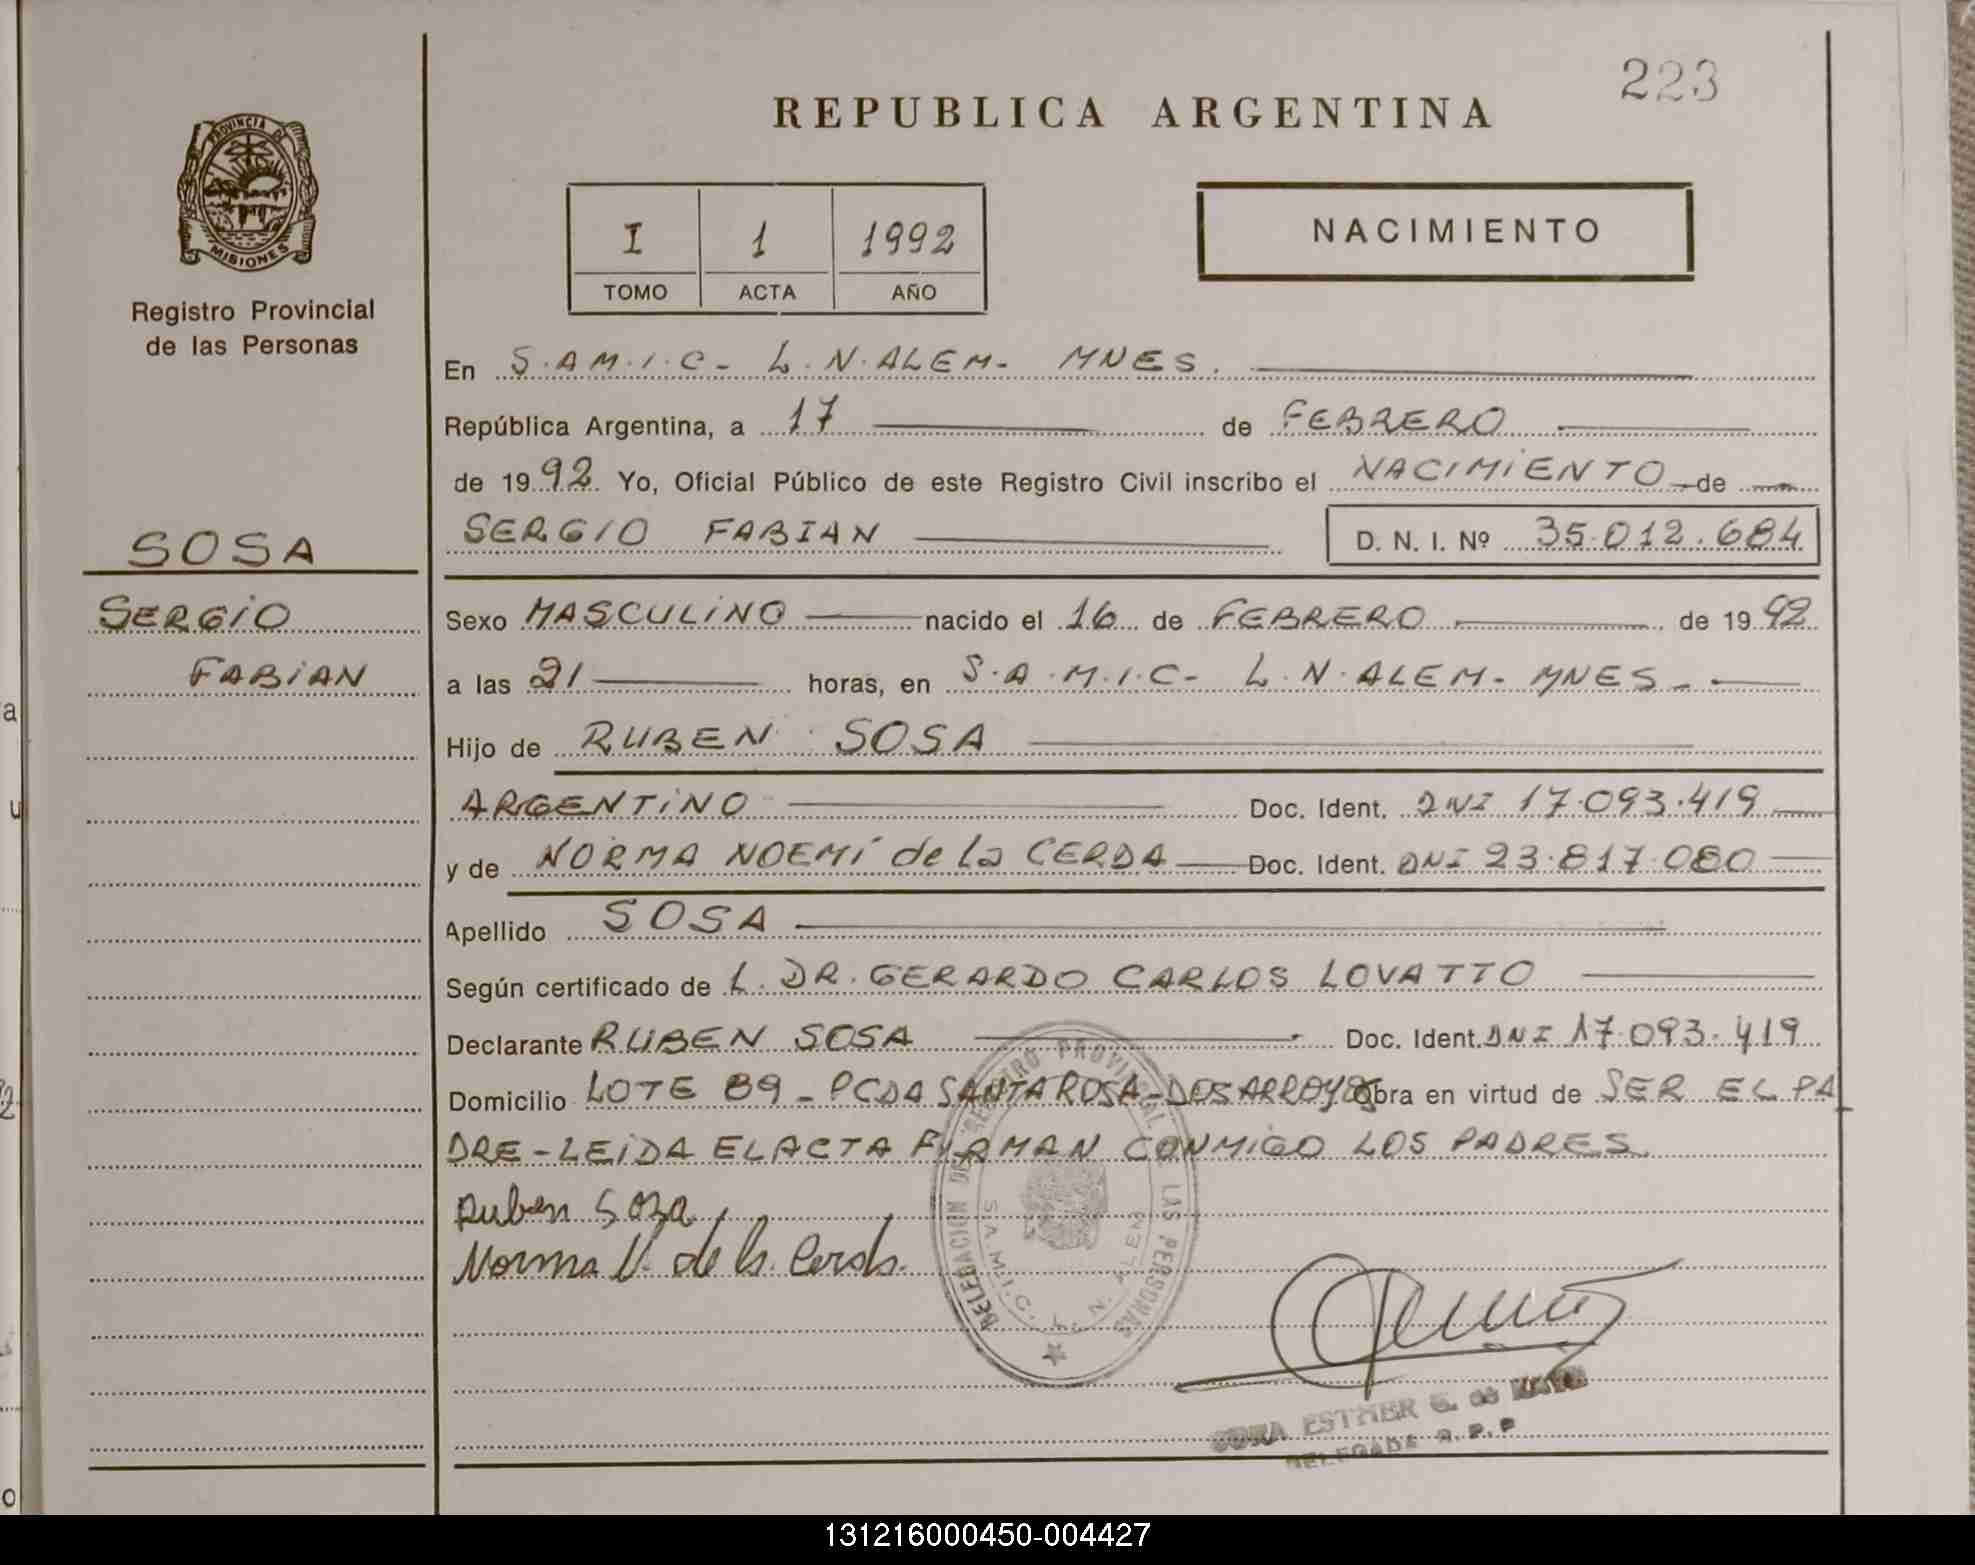 223
REPUBLICA ARGENTINA
PROVINCIA DE
MISIONES
Registro Provincial
de las Personas
I 1 1992
TOMO ACTA AÑO
NACIMIENTO
En S.A.M.I.C- L.N.ALEM- MNES.
República Argentina, a 17 de FEBRERO
de 1992. Yo, Oficial Público de este Registro Civil inscribo el NACIMIENTO de
SERGIO FABIAN D. N. I. Nº 35.012.684
SOSA
SERGIO
FABIAN
Sexo MASCULINO nacido el 16 de FEBRERO de 1992
a las 21 horas, en S.A.M.I.C- L.N.ALEM- MNES-
Hijo de RUBEN SOSA
ARGENTINO Doc. Ident. DNI 17.093.419
y de NORMA NOEMÍ de la CERDA Doc. Ident. DNI 23.817.080
Apellido SOSA
Según certificado de L. DR. GERARDO CARLOS LOVATTO
Declarante RUBEN SOSA Doc. Ident. DNI 17.093.419
Domicilio LOTE 89 - PCDA SANTA ROSA - DOS ARROYOS Obra en virtud de SER EL PA
DRE - LEIDA EL ACTA FIRMAN CONMIGO LOS PADRES
Ruben Soza
Norma N. de la Cerda.
DELEGACION DEL REGISTRO PROVINCIAL DE LAS PERSONAS
S.A.M.I.C. L. N. ALEM
ESTHER G. de
DELEGADA R. P. P
131216000450-004427